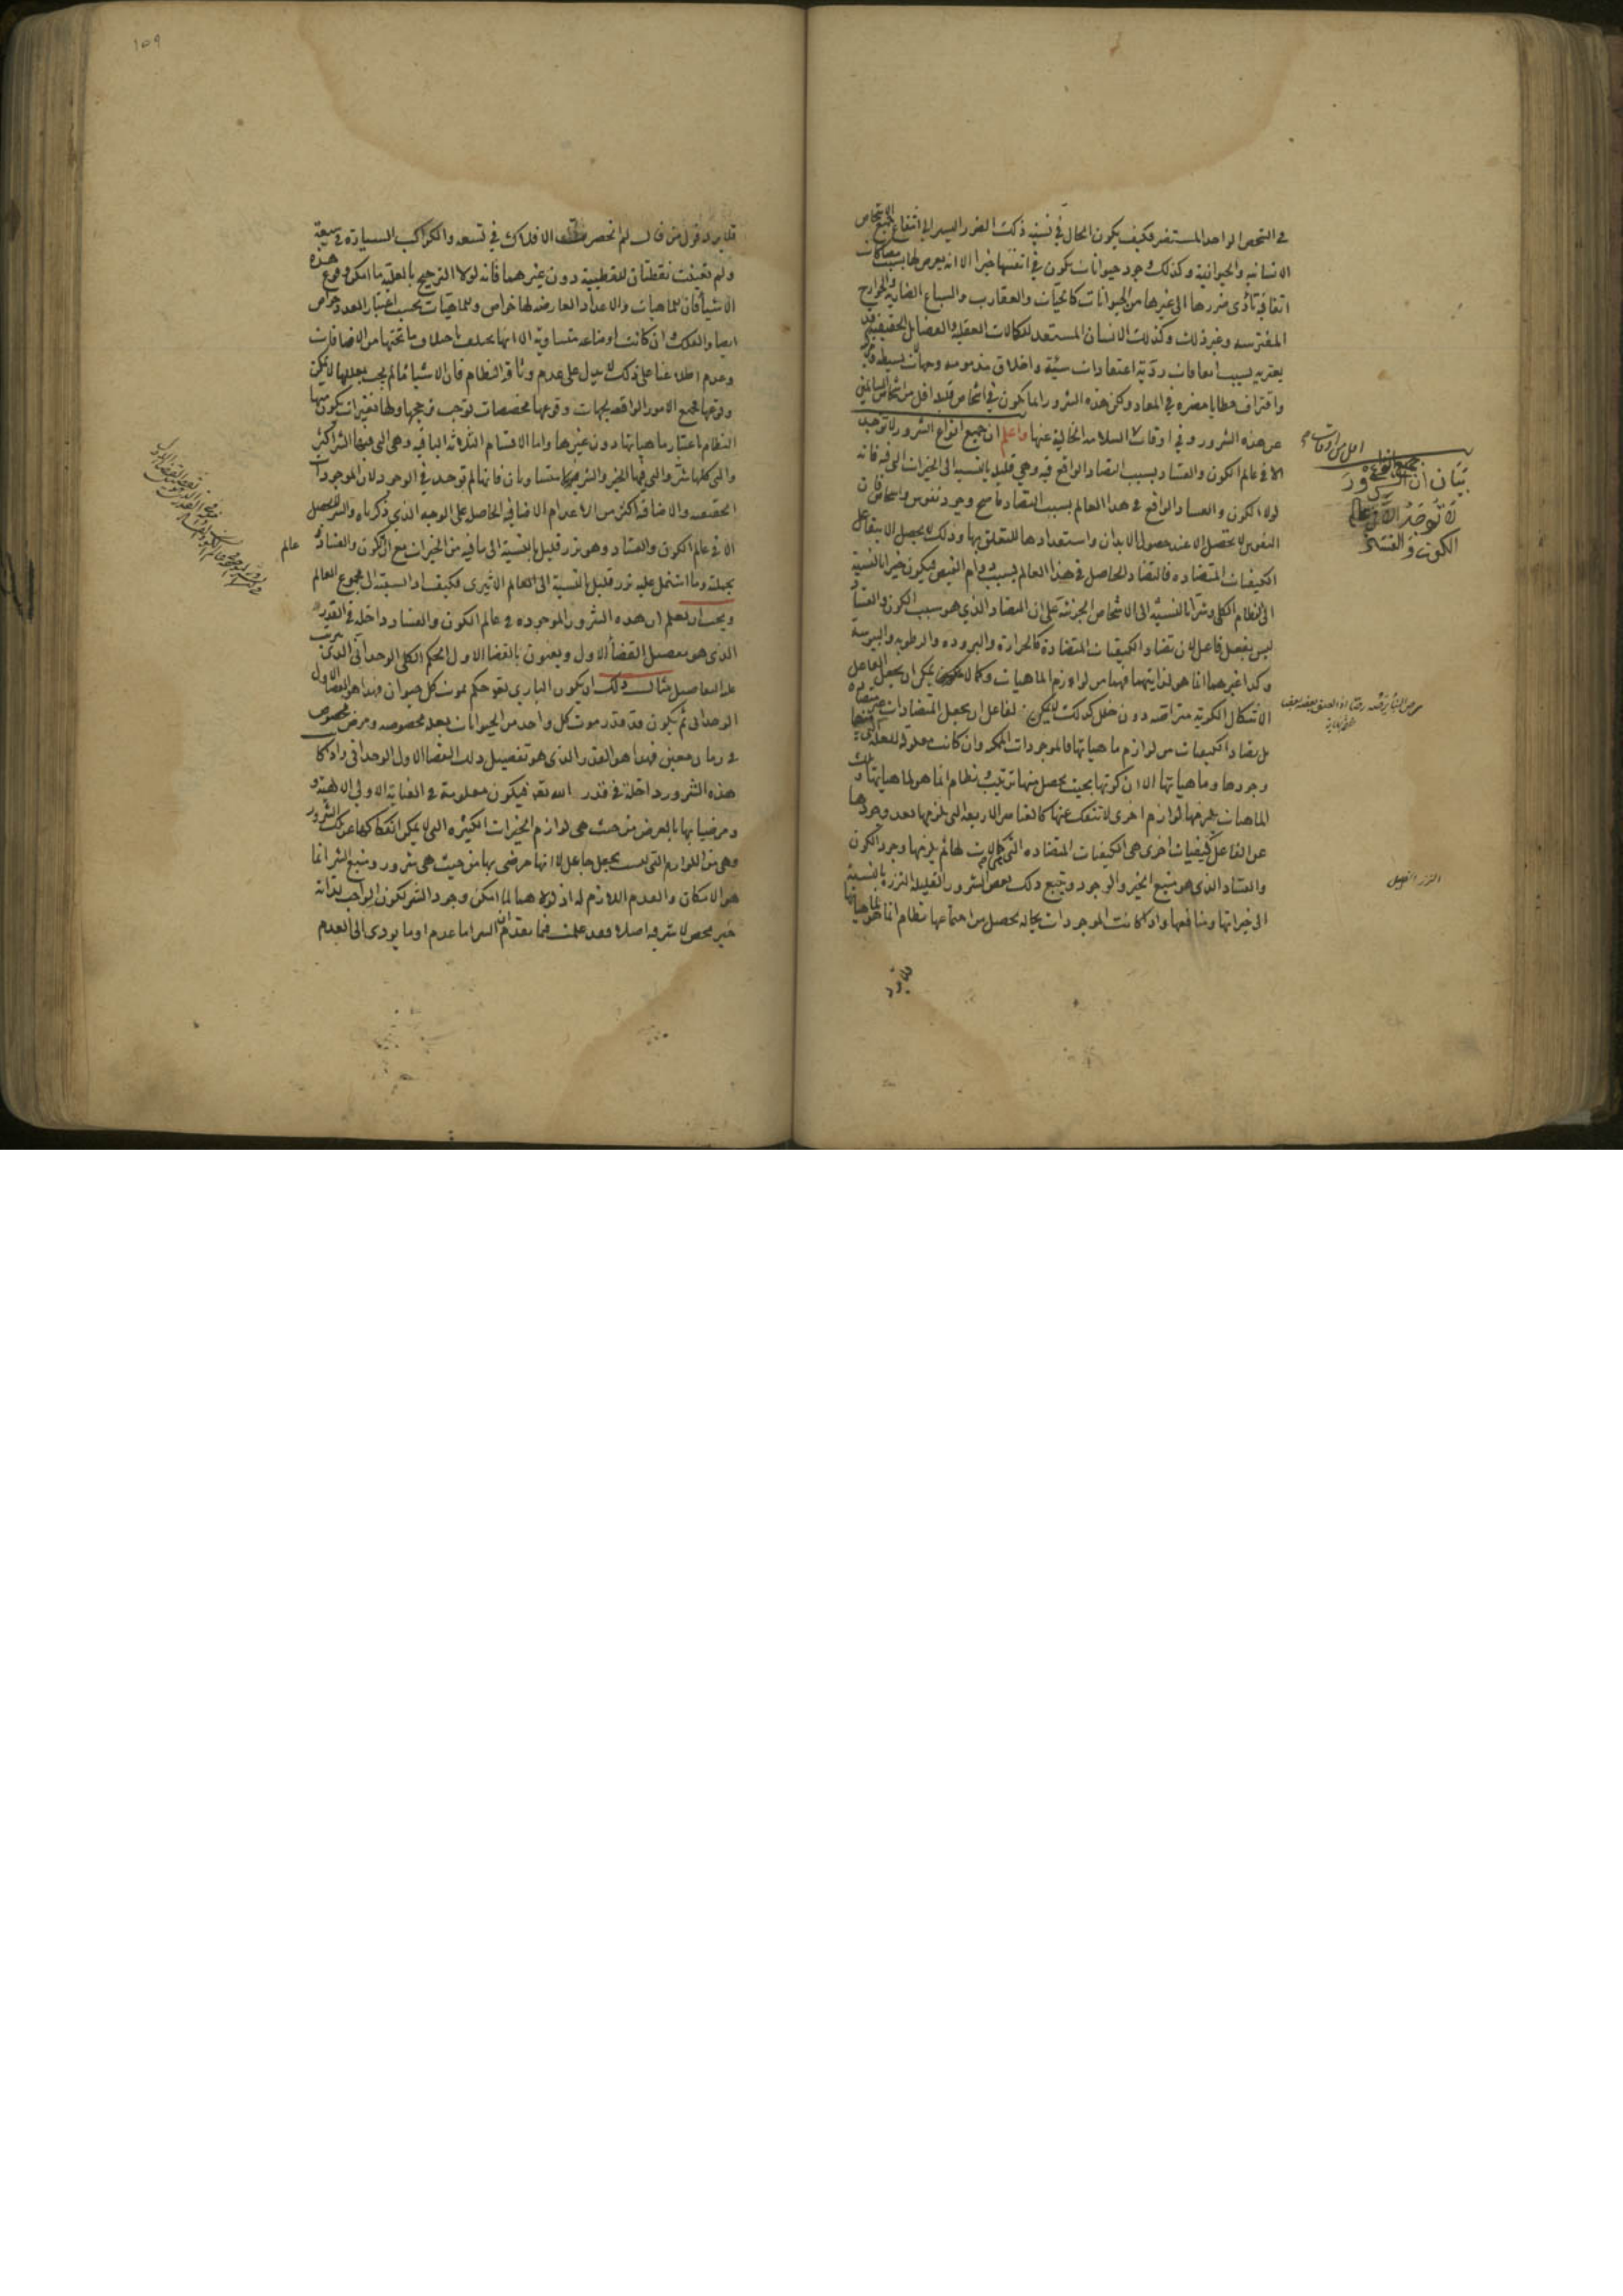 في الشخص الواحد المستضر فكيف يكون الحال في نسبة ذلك الضرر اليسير الى انتفاع جميع الاشخاص
الانسانية والحيوانية وكذلك وجود حيوانات يكون في انفسها خيرا الا انه يعرض لها بسبب مصاكات
اتفاقية تأدى ضررها الى غيرها من الحيوانات كالحيّات والعقارب والسباع الضارية والجوارح
المفترسة وغير ذلك وكذلك الانسان المستعد للكمالات العقلية والفضائل الحقيقية قد
يعتريه بسبب اتفاقات ردّية اعتقادات سيّئة واخلاق مذمومة وجهالات بسيطة
واقتراف خطايا مضرة في المعاد ولكن هذه الشرور انما يكون في اشخاص قليلة اقل من اشخاص السالمين
عن هذه الشرور وفي اوقات السلامة الخالية عنها واعلم ان جميع انواع الشرور لا توجد
الا في عالم الكون والفساد بسبب التضاد الواقع فيه وهي قليلة بالنسبة الى الخيرات التي فيه فانه
لولا الكون والفساد الواقع في هذا العالم بسبب التضاد ما صح وجود نفوس واشخاص فان
النفوس لا تحصل الا عند حصول الابدان واستعدادها للتعلق بها وذلك لا يحصل الا بتفاعل
الكيفيات المتضادة فالتضاد الحاصل في هذا العالم بسبب دوام الفيض فيكون خيرا بالنسبة
الى النظام الكلي وشرّا بالنسبة الى الاشخاص الجزئية على ان التضاد الذي هو سبب الكون والفساد
ليس بفعل فاعل لان تضاد الكيفيات المتضادة كالحرارة والبرودة والرطوبة واليبوسة
وكذا غيرهما انما هو لذاتيهما فهما من لوازم الماهيات وكما لا يمكن ان يجعل الفاعل
الاشكال الكرية متراصة دون خلل كذلك لا يمكن لفاعل ان يجعل المتضادات غير متضادة
بل تضاد الكيفيات من لوازم ماهياتها فالموجودات الممكنة وان كانت معلولة للعلة التي
وجودها وماهياتها الا ان كونها بحيث يحصل منها ترتيب ونظام انما هو لماهياتها وتلك
الماهيات يلزمها لوازم اخرى لا تنفك عنها كالعناصر الاربعة التي يلزمها بعد وجودها
عن الفاعل كيفيات اخرى هي الكيفيات المتضادة التي كمالات لها ثم يلزمها وجود الكون
والفساد الذي هو منبع الخير والوجود ويتبع ذلك بعض الشرور القليلة النزرة بالنسبة
الى خيراتها ومنافعها واذا كانت الموجودات بحاله يحصل من اجتماعها نظام انما هو لماهياتها
فلا يرد
بيان ان جميع انواع الشرور
لا توجد الا في عالم
الكون والفساد
النزر القليل
١٥٩
فلا يرد قول من قال لم انحصرت الافلاك في تسعة والكواكب السيارة في سبعة
ولم تعينت نقطتان للقطبية دون غيرهما فانه لولا الترجيح بالعلية ما امكن وقوع هذه
الاشياء فان للماهيات والاعداد العارضة لها خواص وللماهيات بحسب اعتبار العدد خواص
ايضا والفلك وان كانت اوضاعه متساوية الا انها يختلف باختلاف ما تحتها من الاضافات
وعدم اطلاعنا على ذلك لا يدل على عدم وثاقة النظام فان الاشياء ما لم يجب بعللها لا يمكن
وقوعها فجميع الامور الواقعة لجهات وقوعها مخصصات توجب ترجحها ولها تغيرات يكون منها
النظام باعتبار ماهياتها دون غيرها واما الاقسام الثلاثة الباقية وهي التي فيها الشر اكثر
والتي كلها شرّ والتي فيها الخير والشر متساويان فانها لم توجد في الوجود لان الموجودات
الحقيقية والاضافية اكثر من الاعدام الاضافية الحاصل على الوجه الذي ذكرناه والشر لا يحصل
الا في عالم الكون والفساد وهو نزر قليل بالنسبة الى ما فيه من الخيرات مع ان الكون والفساد
عالم
بجملته وما اشتمل عليه نزر قليل بالنسبة الى العالم الاثيرى فكيف اذا نسبته الى مجموع العالم
ويجب ان يعلم ان هذه الشرور الموجودة في عالم الكون والفساد داخلة في القدر
الذي هو تفصيل القضاء الاول ويعنون بالقضاء الاول الحكم الكلى الوحدانى الذى يترتب
عليه التفاصيل مثال ذلك ان يكون الباري تعالى حكم بموت كل حيوان فهذا هو القضاء الاول
الوحداني ثم يكون قد قدر موت كل واحد من الحيوانات بعلة مخصوصة ومرض مخصوص
في زمان معين فهذا هو القدر الذي هو تفصيل ذلك القضاء الاول الوحداني واذا كانت
هذه الشرور داخلة في قدر الله تعالى فيكون معلومة في العناية الاولى الالهية و
مرضيا بها بالعرض من حيث هي لوازم الخيرات الكثيرة التي لا يمكن انفكاكها عن تلك الشرور
وهي من اللوازم التي ليست بجعل جاعل لا انها مرضي بها من حيث هي شرور ومنبع الشر انما
هو الامكان والعدم اللازم له اذ لولا هما لما امكن وجود الشر لكون الواجب بذاته
خير محض لا شر فيه اصلا وقد علمت فيما تقدم ان الشر اما عدم او ما يؤدى الى العدم